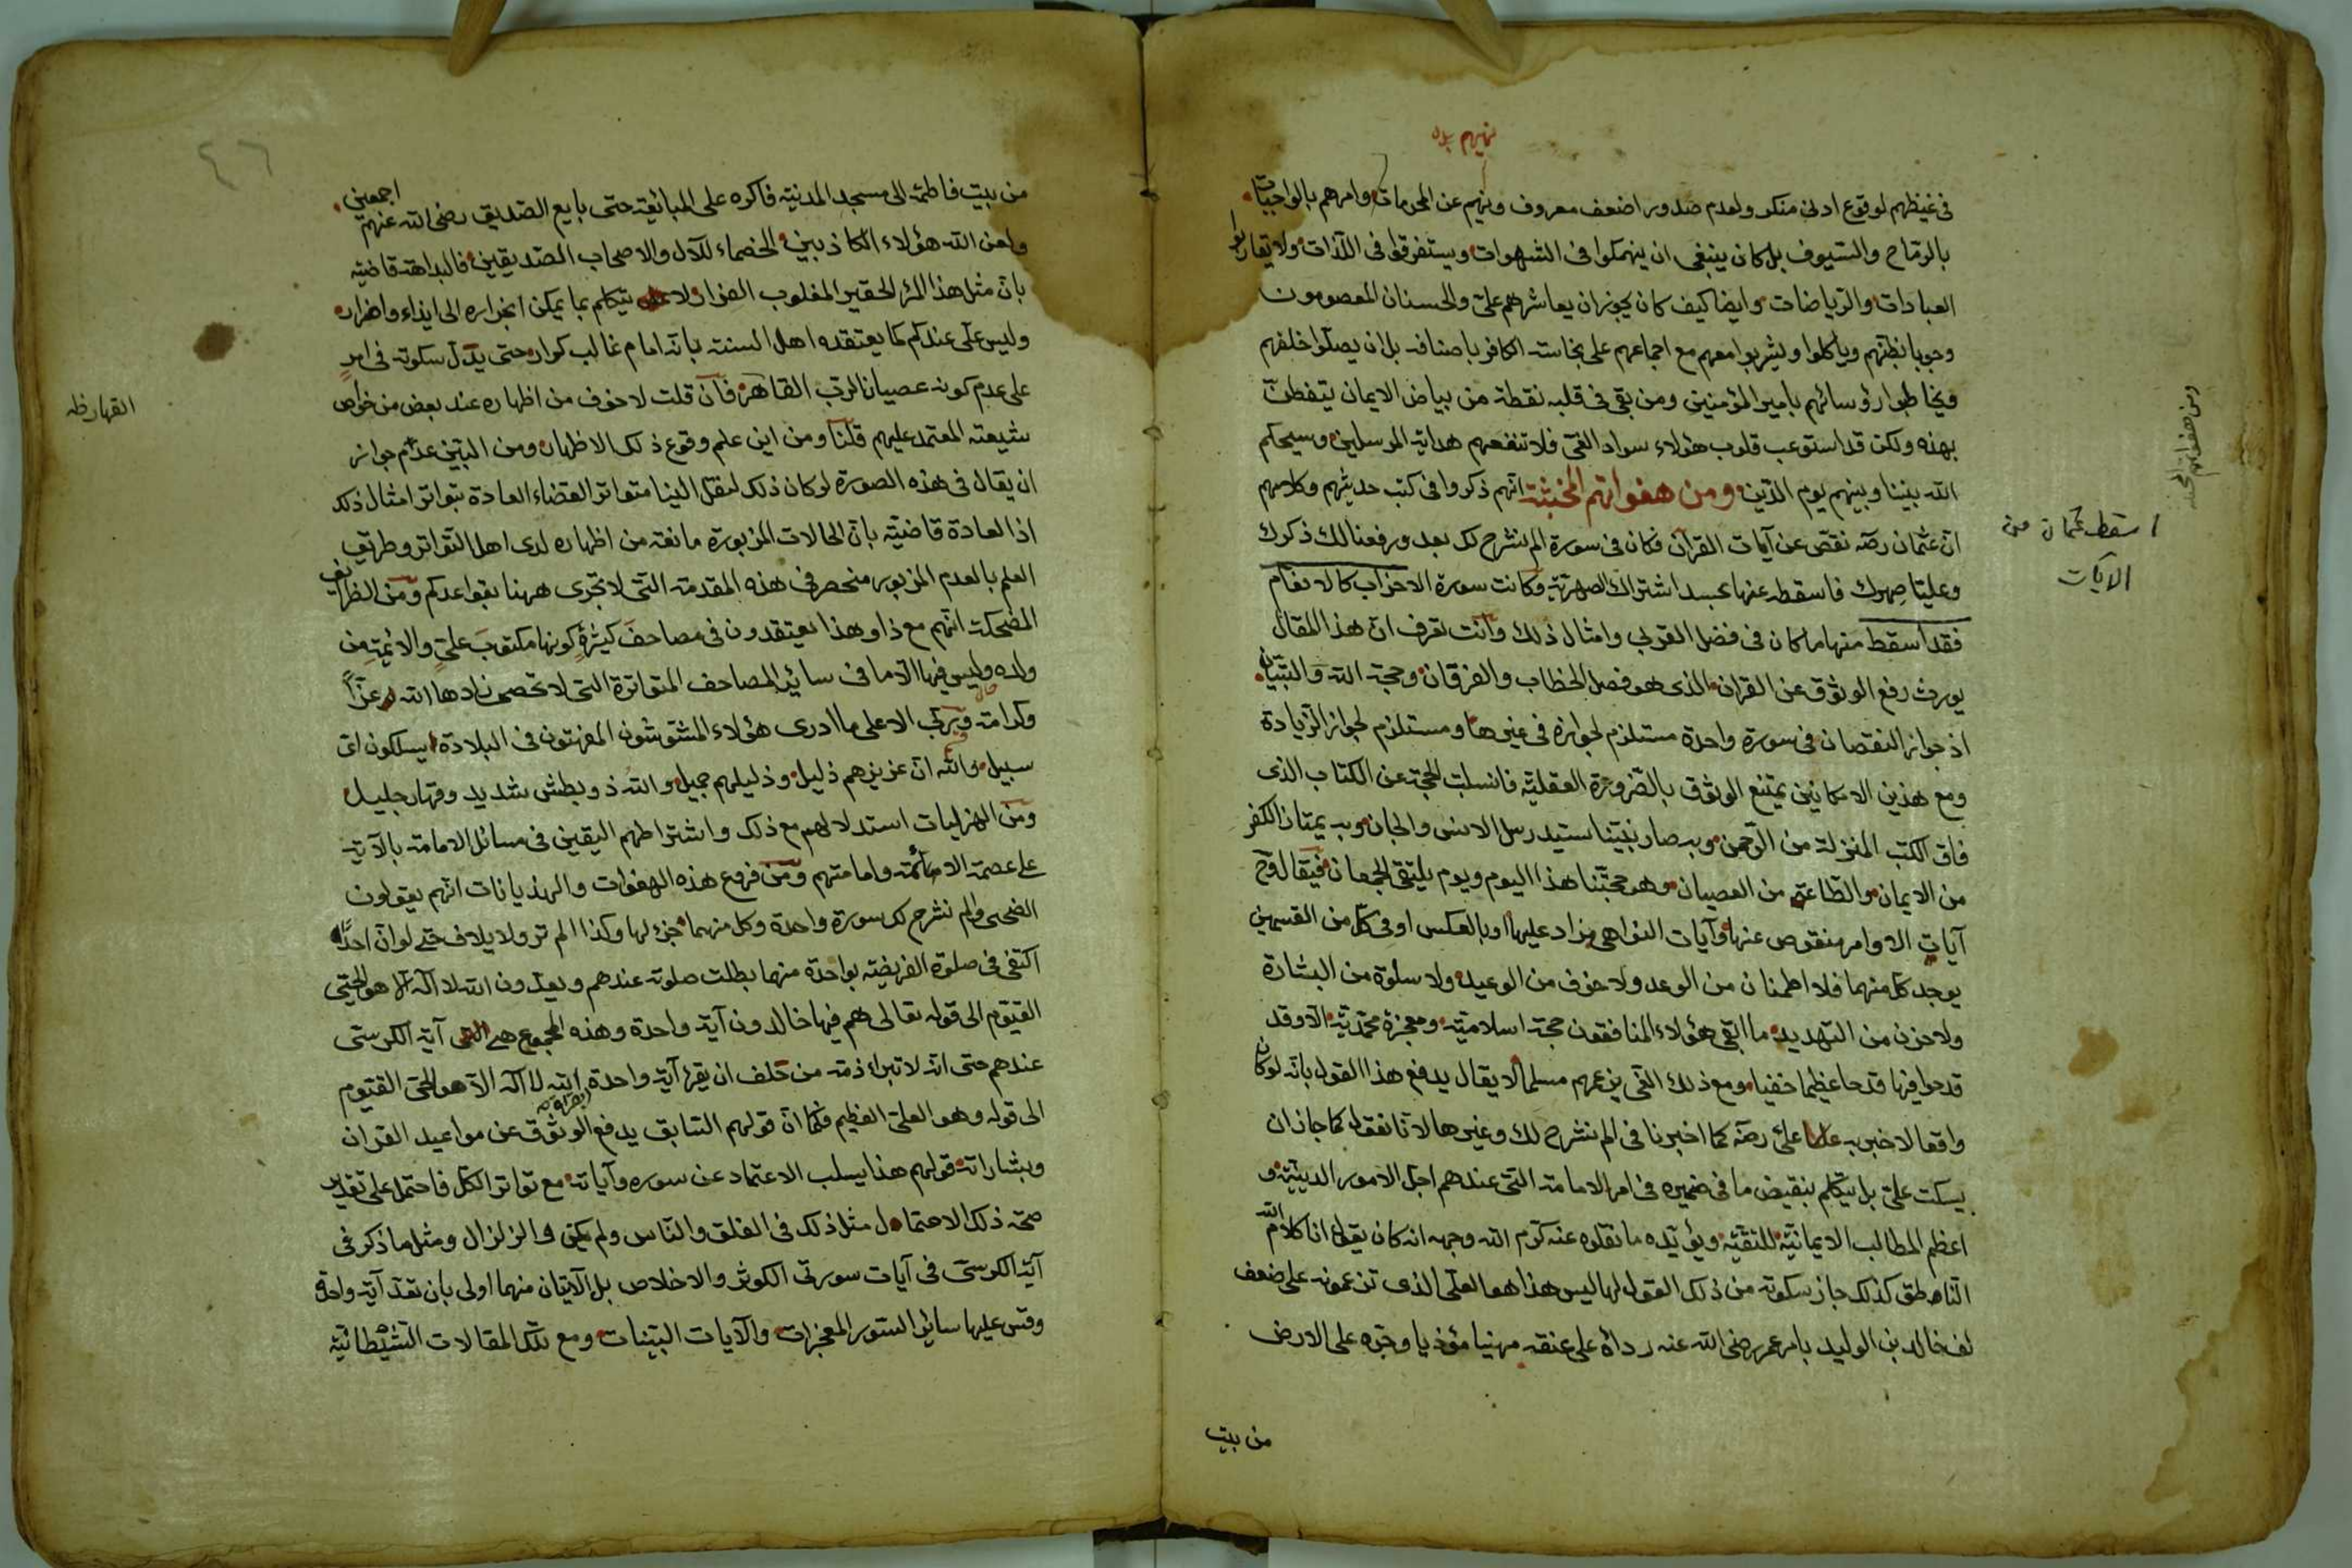 نهيهم بدله
في غيظهم لوقوع ادنى منكر ولعدم صدور اضعف معروف ونهيهم عن المحرمات وامرهم بالواجبات
بالرماح والسيوف بل كان ينبغي ان ينهمكوا في الشهوات ويستغرقوا في اللذات ولا يقاربوا
العبادات والرياضات وايضا كيف كان يجوز ان يعاشرهم علي والحسنان المعصومون
ويأكلوا ويشربوا معهم مع اجماعهم على نجاسة الكافر باصنافه بل ان يصلوا خلفهم
ويخاطبوا رؤسائهم بامير المؤمنين ومن بقى في قلبه نقطة من بياض الايمان يتفطن
بهذه ولكن قد استوعب قلوب هؤلاء سواد الغي فلا تنفعهم هداية المرسلين وسيحكم
الله بيننا وبينهم يوم الدين ومن هفواتهم المخبثة انهم ذكروا في كتب حديثهم وكلامهم
ان عثمان رضه نقص عن آيات القرآن فكان في سورة الم نشرح لك بعد ورفعنا لك ذكرك
وعليا صهرك فاسقطه عنها بحسد اشتراك الصهرية وكانت سورة الاحزاب كالانعام
فقد اسقط منها ما كان في فضل القربى وامثال ذلك وانت تعرف ان هذا المقال
يورث رفع الوثوق عن القران الذي هو فصل الخطاب والفرقان وحجة الله والتبيان
اذ جواز النقصان في سورة واحدة مستلزم لجوازه في غيرها ومستلزم لجواز الزيادة
ومع هذين الامكانين يمتنع الوثوق بالضرورة العقلية فانسلبت الحجة عن الكتاب الذي
فاق الكتب المنزلة من الرحمن وبه صار نبينا سيد رسل الانس والجان وبه يمتاز الكفر
من الايمان والطاعة من العصيان وهو حجتنا هذا اليوم ويوم يلتقى الجمعان فيقال وح
آيات الاوامر منقوص عنها وآيات النواهي مزاد عليها او بالعكس او في كل من القسمين
يوجد كل منهما فلا اطمئنان من الوعد ولا خوف من الوعيد ولا سلوة من البشارة
ولا حزن من التهديد ما ابقى هؤلاء المنافقون حجة اسلامية ومعجزة محمدية الا وقد
قدحوا فيها قدحا عظيما خفيا ومع ذلك الغي يزعمهم مسلما لا يقال يدفع هذا القول بانه لو كان
واقعا لاخبر به علي رضه كما اخبرنا في الم نشرح لك وغيرها لانا نقول كما جاز ان
يسكت علي بل يتكلم بنقيض ما في ضميره في امر الامامة التي عندهم اجل الامور الدينية و
اعظم المطالب الايمانية للتقية ويؤيده ما نقلوه عنه كرم الله وجهه انه كان يقول انا كلام الله
الناطق كذلك جاز سكوته من ذلك القول لها اليس هذا هو العلي الذي تزعمونه على ضعف
لف خالد بن الوليد بامر عمر رضى الله عنه رداه على عنقه مهينا مؤذيا وجره على الارض
من بيت
ومن هفواتهم المخبثة
اسقط عثمان من
الآيات
٤٦
من بيت فاطمة الى مسجد المدينة فاكره على المبايعة حتى بايع الصديق رضى الله عنهم اجمعين
ولعن الله هؤلاء الكاذبين الخصماء للآل والاصحاب الصديقين فالبداهة قاضية
بان مثل هذا المرء الحقير المغلوب الفرار لا يتكلم بما يمكن انجراره الى ايذاء واضرار
وليس علي عندكم كما يعتقده اهل السنة بانه امام غالب كرار حتى يدل سكوته في امر
على عدم كونه عصيان الرب القاهر فان قلت لا خوف من اظهاره عند بعض من خواص
القهار ظه
شيعته المعتمد عليهم قلنا ومن اين علم وقوع ذلك الاظهار ومن البين عدم جواز
ان يقال في هذه الصورة لو كان ذلك لنقل الينا متواترا لقضاء العادة بتواتر امثال ذلك
اذ العادة قاضية بان الحالات المزبورة مانعة من اظهاره لدى اهل التواتر وطريق
العلم بالعدم المزبور منحصر في هذه المقدمة التي لا تجرى ههنا بقواعدكم ومن الظرائف
المضحكة انهم مع ذا وهذا يعتقدون في مصاحف كثيرة كونها مكتوب علي والائمة من
ولده وليس فيها الا ما في سائر المصاحف المتواترة التي لا تحصى زادها الله عزا
وكرامة وبركت الاعلى ما ادرى هؤلاء المشوشون المفرنتون في البلادة يسلكون اى
سبيل والله ان عزيزهم ذليل وذليلهم جميل والله ذو بطش شديد وقهار جليل
ومن الهزليات استدلالهم مع ذلك واشتراطهم اليقين في مسائل الامامة بالآية
على عصمة الائمة وامامتهم ومن فروع هذه الهفوات والهذيانات انهم يقولون
الضحى والم نشرح لك سورة واحدة وكل منهما جزء لها وكذا الم تر ولايلاف حتى لو ان احدا
اكتفى في صلوة الفريضة بواحدة منهما بطلت صلوته عندهم ويعدون الله لا اله الا هو الحي
القيوم الى قوله تعالى هم فيها خالدون آية واحدة وهذه المجموع هى آية الكرسي
عندهم حتى انه لا تبرأ ذمة من حلف ان يقرأ آية واحدة الله لا اله الا هو الحي القيوم
الى قوله وهو العلي العظيم فكما ان قولهم السابق يدفع الوثوق عن مواعيد القران
وبشاراته قولهم هذا يسلب الاعتماد عن سوره وآياته مع تواتر الكل فاحتمل على تقدير
صحة ذلك الاحتمال مثل ذلك في الفلق والناس ولم يكن والزلزال ومثل ما ذكر في
آية الكرسي في آيات سورتى الكوثر والاخلاص بل الآيتان منهما اولى بان تعد آية واحدة
وقس عليها سائر السور المعجزات والآيات البينات ومع تلك المقالات الشيطانية